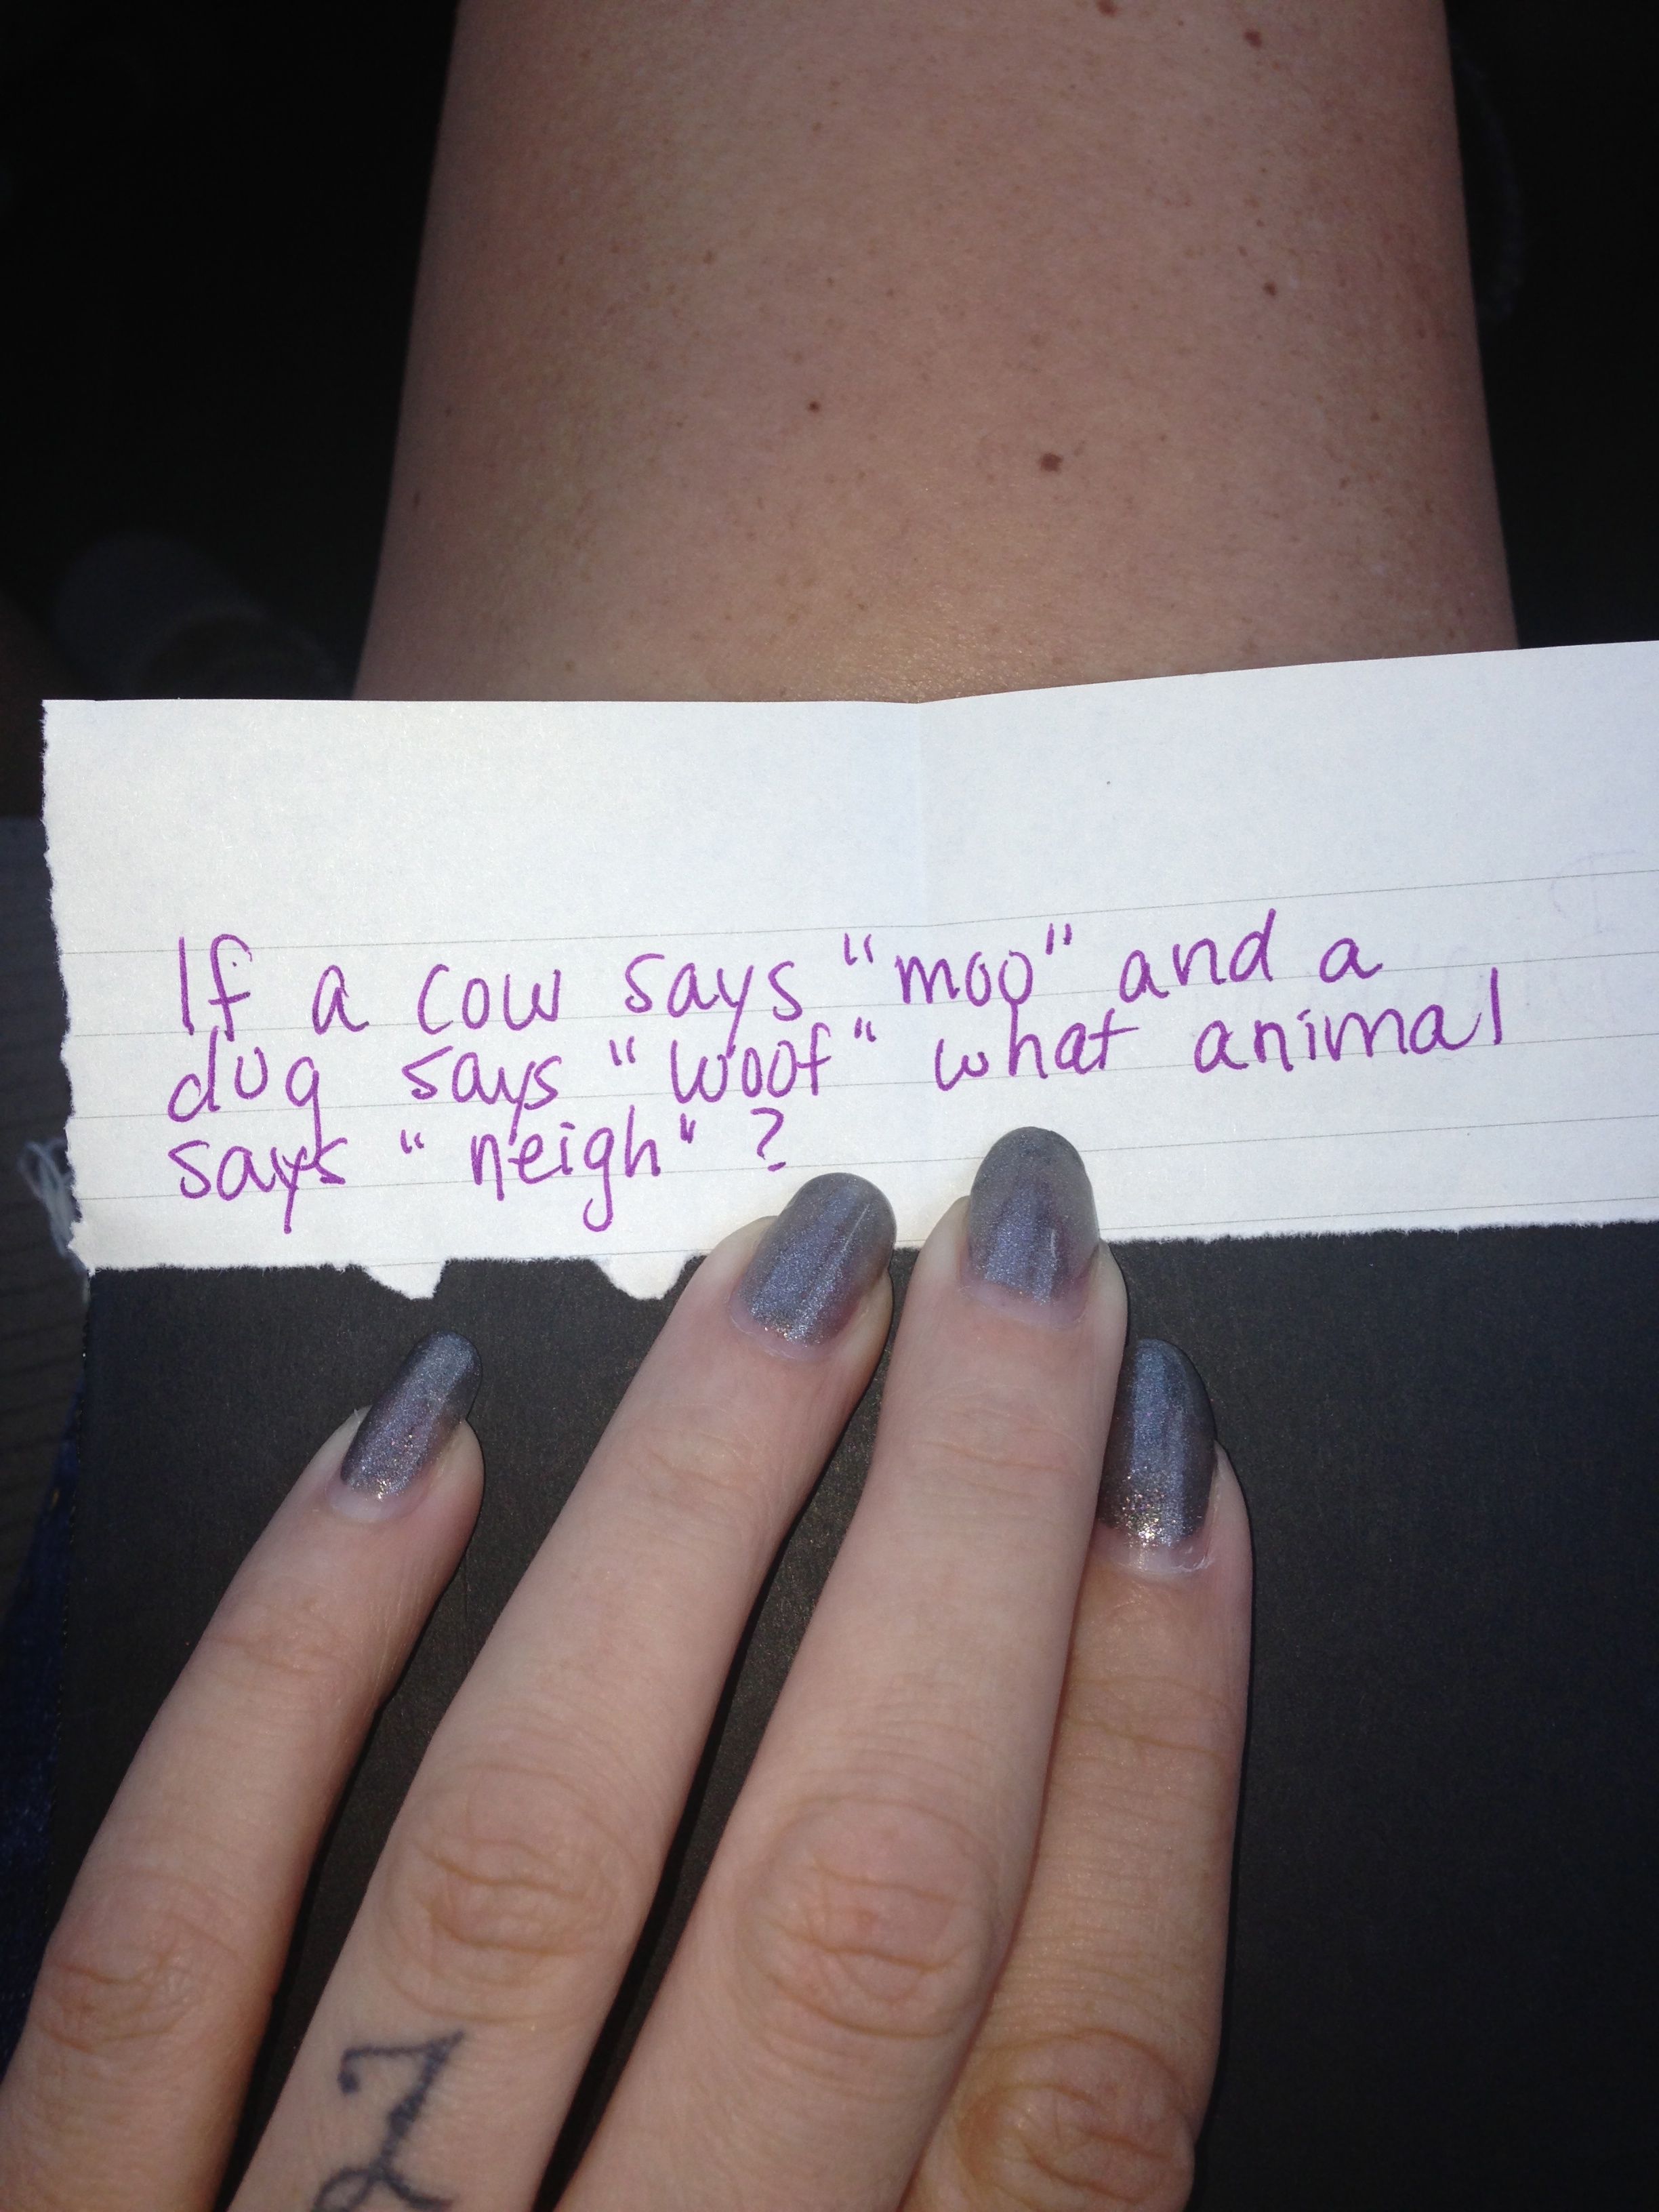 If a cow says "moo" and a
dog says "woof" what animal
says "neigh"?